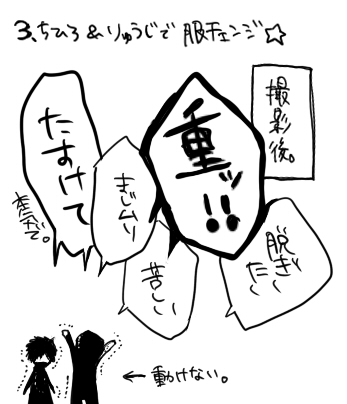 3、ちひろ&りゅうじで服チェンジ☆
撮影後。
重ッ!!
脱ぎたい
苦しい
まじムリ
たすけて
本気で。
←動けない。